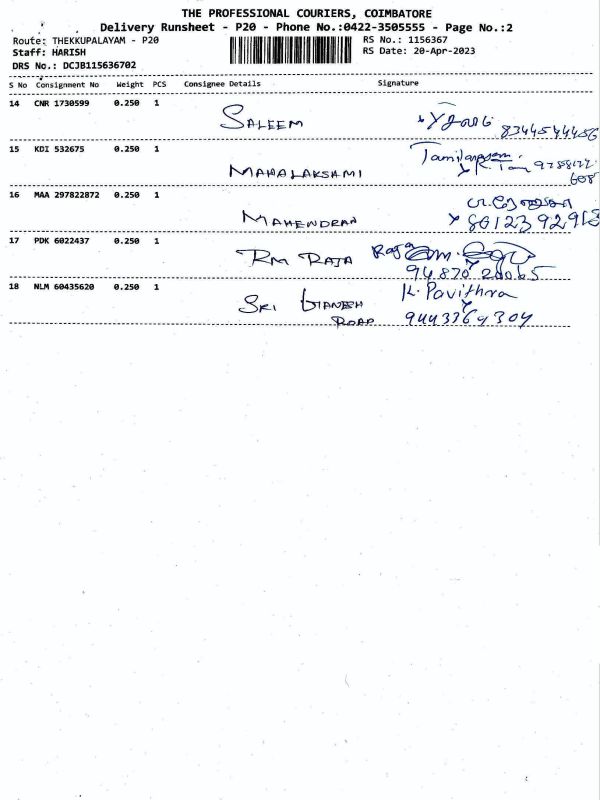 THE PROFESSIONAL COURIERS, COIMBATORE
Delivery Runsheet - P20 - Phone No.:0422-3505555 - Page No.:2
Route: THEKKUPALAYAM - P20
RS No.: 1156367
Staff: HARISH
RS Date: 20-Apr-2023
DRS No.: DCJB115636702
S No Consignment No Weight PCS Consignee Details Signature
14 CNR 1730599 0.250 1
SALEEM 8344544456
15 KDI 532675 0.250 1
MAHALAKSHMI
608
16 MAA 297822872 0.250 1
MAHENDRAN
17 PDK 6022437 0.250 1
RM RAJA Raja
94870 20065
18 NLM 60435620 0.250 1 K. Pavithra
SRI GANESH
ROAD